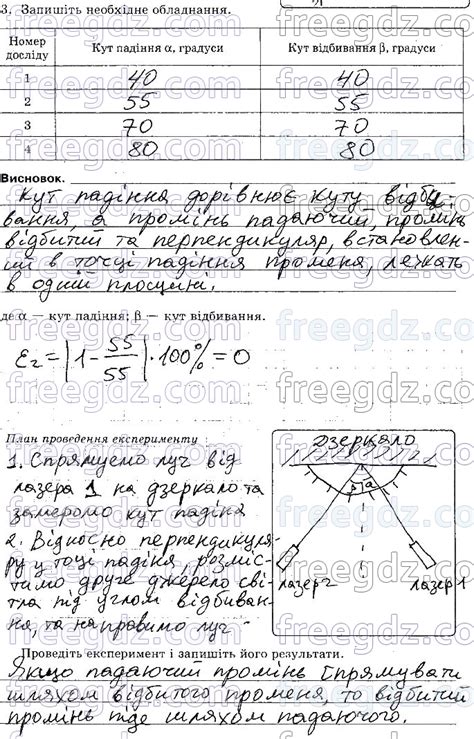 3. Запишіть необхідне обладнання.
Номер досліду Кут падіння α, градуси Кут відбивання β, градуси
1 40 40
2 55 55
3 70 70
4 80 80
Висновок.
Кут падіння дорівнює куту відби-
вання, а промінь падаючий, промінь
відбитий та перпендикуляр, встановлен-
ий в точці падіння променя, лежать
в одній площині.
де α — кут падіння; β — кут відбивання.
ε₂ = |1 - 55/55| · 100% = 0
План проведення експерименту
1. Спрямуємо луч від
лазера 1 на дзеркало та
замеромо кут падіня
2. Відносно перпендикуля-
ру у тоці падіня, розміс-
тимо друге джерело сві-
тла під углом відбиван-
ня, та направимо луч
дзеркало
β α
лазер 2 лазер 1
Проведіть експеримент і запишіть його результати.
Якщо падаючий промінь спрямувати
шляхом відбитого променя, то відбитий
промінь піде шляхом падаючого.
freegdz.com